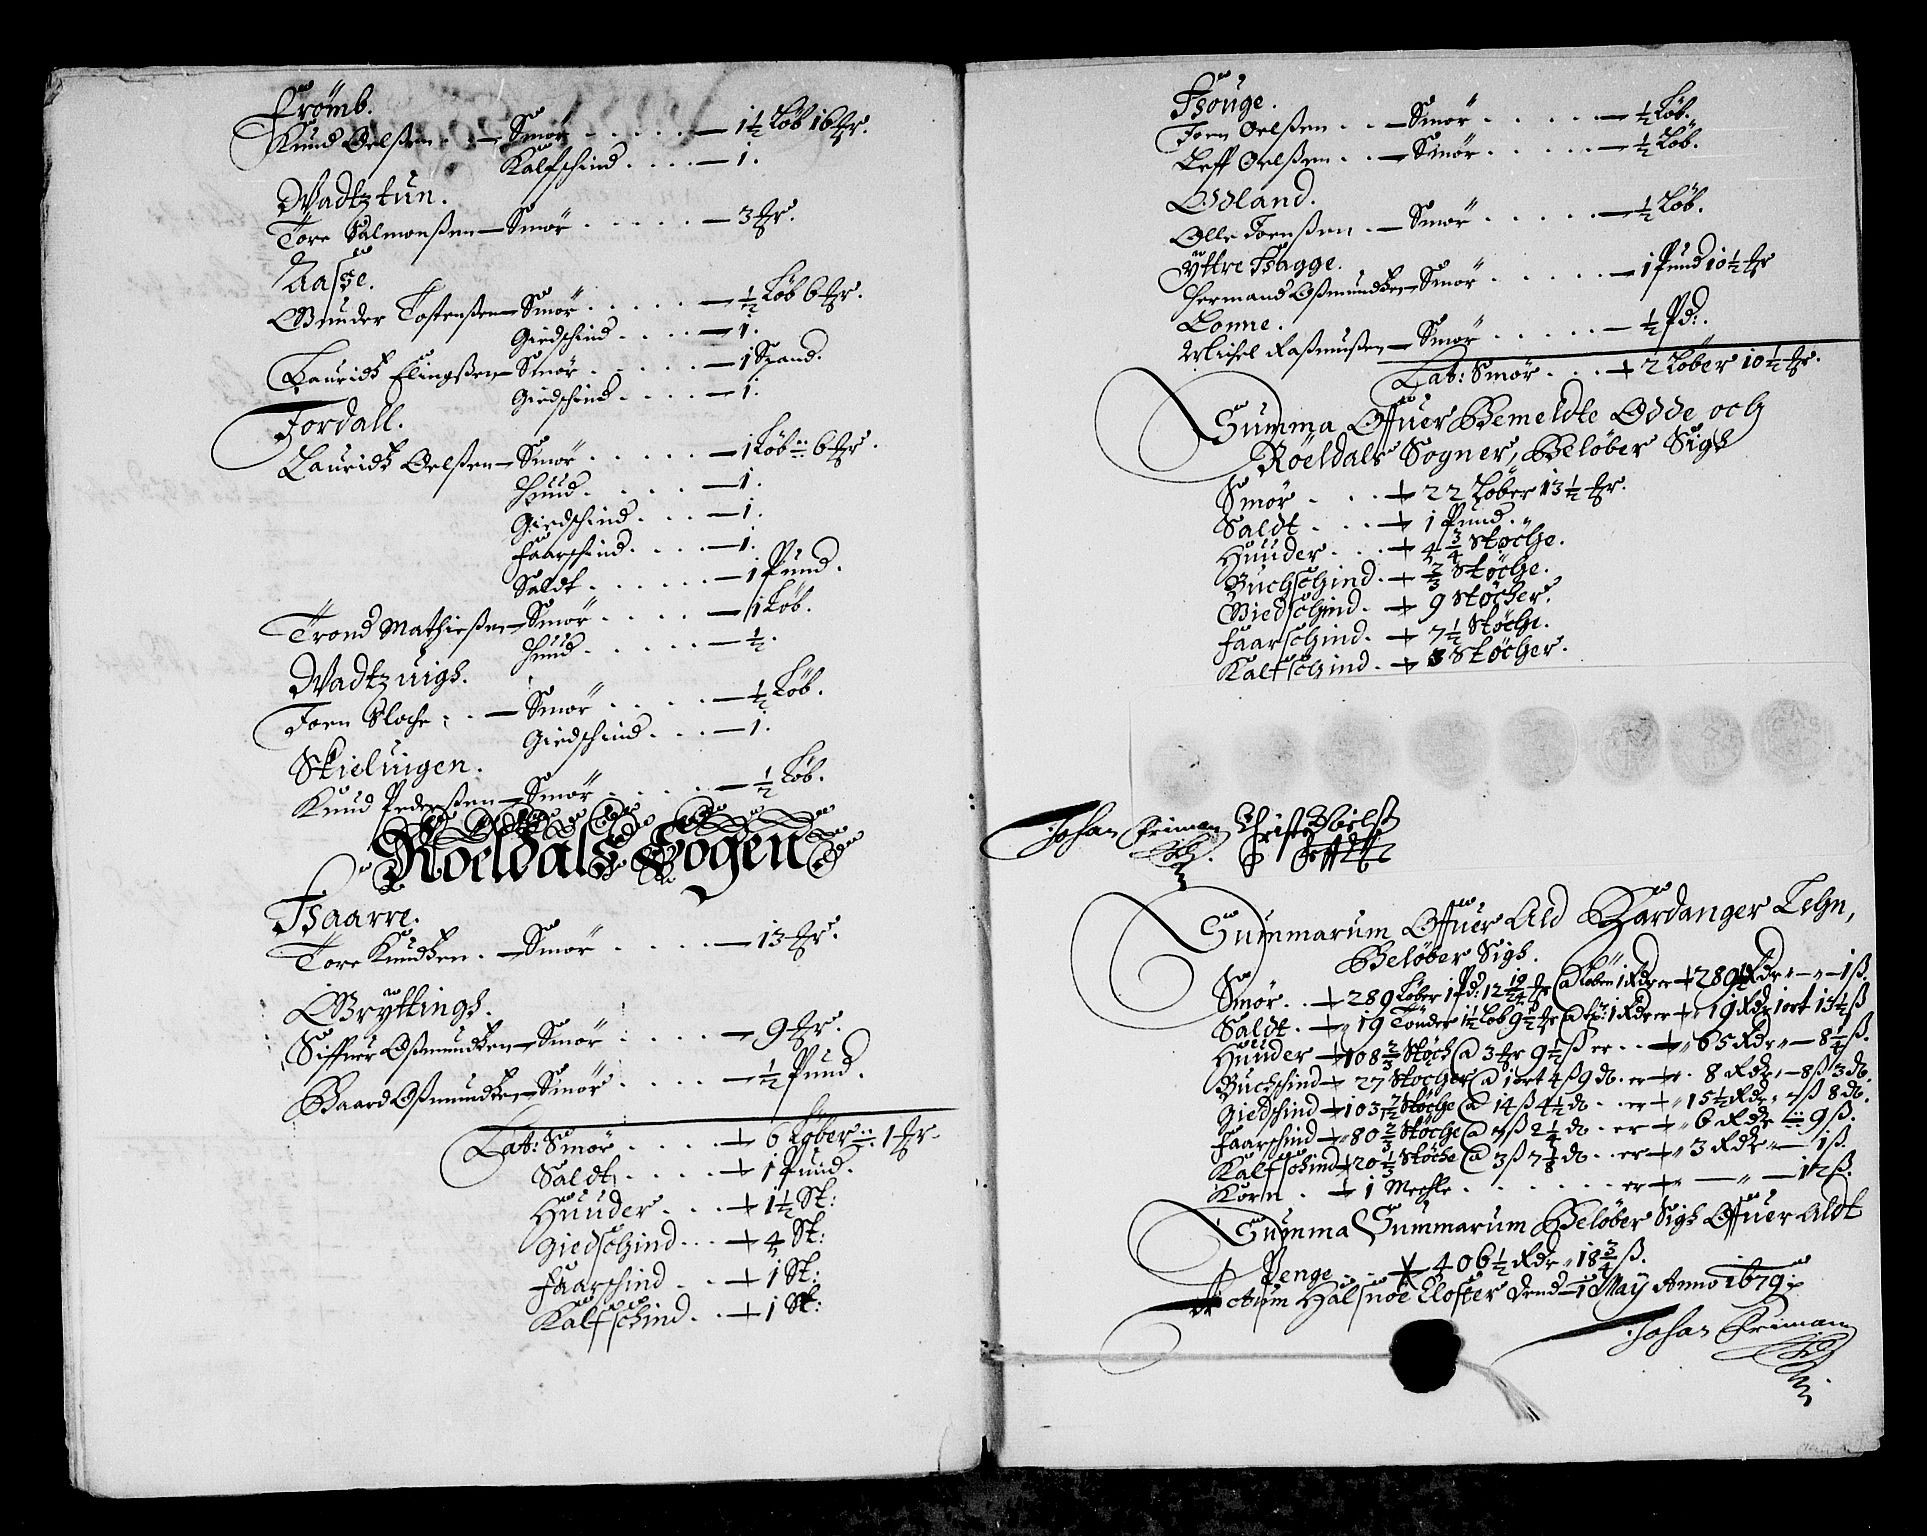 Frømb.
Knud Oelßen - Smör - 1½ Løb 16 ℔r.
Kalfschind - 1.
Wadtztun.
Tore Salmonßen - Smör - 3 ℔r.
Aasse.
Gunder Tostenßen - Smör - ½ Løb 6 ℔r.
Giedschind - 1.
Lauridtz Elingßen - Smör - 1 Spand.
Giedschind - 1.
Jordall.
Lauridtz Oelßen - Smör - 1 Løb 6 ℔r.
Huud - 1.
Giedschind - 1.
Faarschind - 1.
Saldt - 1 Pund.
Trond Mathießen - Smör - 1 Løb.
Huud - ½.
Wadtzuigh.
Joen - Smör - ½ Løb.
Giedschind - 1.
Skieluigen.
Knud Pederßen - Smör - ½ Løb.
Roeldals Sogen
Haarre.
Tore Knudtzen - Smör - 13 ℔r.
Gryttingh.
Siffuer Oßmundtzen - Smör - 9 ℔r.
Baard Oßmundtzen - Smör - ½ Pund.
Lat: Smör - 6 Løber 1 ℔r.
Saldt - 1 Pund.
Huuder - 1½ St:
Giedschind - 4 St:
Faarschind - 1 St:
Kalfschind - 1 St:
Houge.
Joen Oelßen - Smör - ½ Løb.
Leff Oelßen - Smör - ½ Løb.
Øland.
Olle Joenßen - Smör - ½ Løb.
Yttre Hagge.
Hermand Oßmundtzen - Smör - 1 Pund 10½ ℔r
Lonne.
Michel Raßmußen - Smör - ½ Pd:.
Lat: Smör - 2 Løber 10½ ℔r.
Summa Offuer Bemeldte Odde och
Röeldals Sogner, Beløber Sigh
Smör - 22 Løber 13½ ℔r.
Saldt - 1 Pund.
Huuder - 4¾ Støche.
Buchschind - ⅔ Støche.
Giedschind - 9 Støcher.
Faarschind - 7½ Støche.
Kalfschind - 3 Støcher.
Johan Friman
Summarum Offuer Ald Hardanger Lehn,
Beløber Sigh.
Smör - 289 Løber 1 Pd: 12 19/24 ℔r @ Løben 1 Rdr er - 289½ Rdr - 1 ß.
Saldt - 19 Tønder 1½ Løb 9½ ℔r @ 1 Rdr er - 19 Rdr 1 ort 13½ ß
Huuder - 108⅔ Støch @ 3 ℔r 9½ ß er - 65 Rdr - 8¼ ß.
Buchschind - 27 Støcher @ 1 ort 4 ß 9 d. er - 8 Rdr - 8 ß 3 d.
Giedschind - 103 7/12 Støche @ 14 ß 4½ d. er - 15½ Rdr 7 ß 8 d.
Faarschind - 80⅔ Støche @ 7 ß 2¼ d. er - 6 Rdr 9 ß.
Kalfschind - 20⅓ Støche @ 3 ß 7⅛ d. er - 3 Rdr - 1 ß.
Korn - 1 Mechle - er - 12 ß.
Summa Summarum Beløber Sigh Offuer Aldt
Penge - 406½ Rdr 18¾ ß.
Actum Halsnöe Closter dend 1 May Anno 1679
Johan Friman